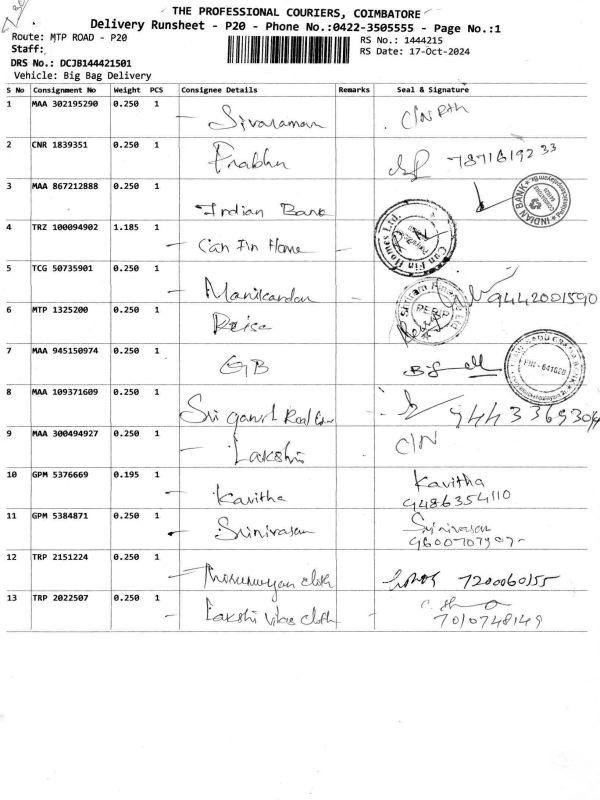 THE PROFESSIONAL COURIERS, COIMBATORE
Delivery Runsheet - P20 - Phone No.:0422-3505555 - Page No.:1
Route: MTP ROAD - P20
RS No.: 1444215
Staff:
RS Date: 17-Oct-2024
DRS No.: DCJB144421501
Vehicle: Big Bag Delivery
S No Consignment No Weight PCS Consignee Details Remarks Seal & Signature
1 MAA 302195290 0.250 1 - Sivaraman
2 CNR 1839351 0.250 1 Prabhu
3 MAA 867212888 0.250 1 Indian Bank INDIAN BANK
4 TRZ 100094902 1.185 1 - Can Fin Home - Can Fin Homes Ltd.
5 TCG 50735901 0.250 1 - Manikandan 9442001590
6 MTP 1325200 0.250 1
7 MAA 945150974 0.250 1 GB
8 MAA 109371609 0.250 1 Sri
9 MAA 300494927 0.250 1 - C/N
10 GPM 5376669 0.195 1 - Kavitha Kavitha
9486354110
11 GPM 5384871 0.250 1 - Srinivasan Srinivasan
12 TRP 2151224 0.250 1 - cloth 7200060155
13 TRP 2022507 0.250 1 - Lakshi Vilas cloth
7010748149